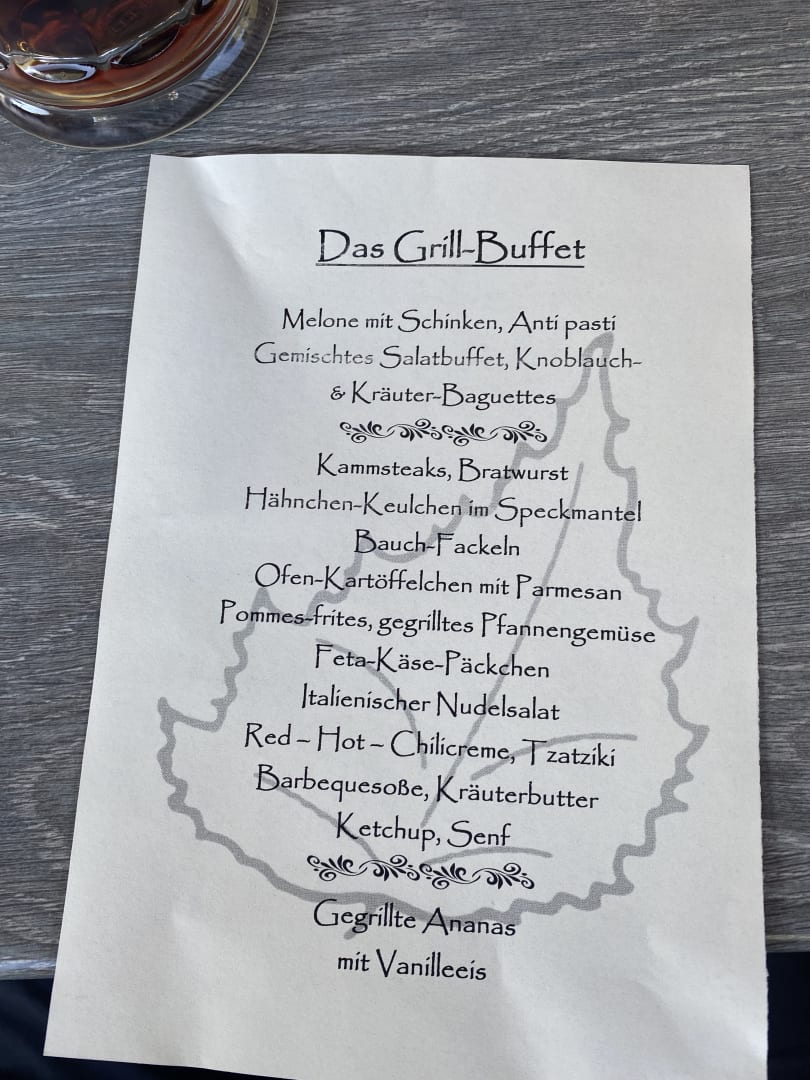 Das Grill-Buffet
Melone mit Schinken, Anti pasti
Gemischtes Salatbuffet, Knoblauch-
& Kräuter-Baguettes
Kammsteaks, Bratwurst
Hähnchen-Keulchen im Speckmantel
Bauch-Fackeln
Ofen-Kartöffelchen mit Parmesan
Pommes-frites, gegrilltes Pfannengemüse
Feta-Käse-Päckchen
Italienischer Nudelsalat
Red – Hot – Chilicreme, Tzatziki
Barbequesoße, Kräuterbutter
Ketchup, Senf
Gegrillte Ananas
mit Vanilleeis